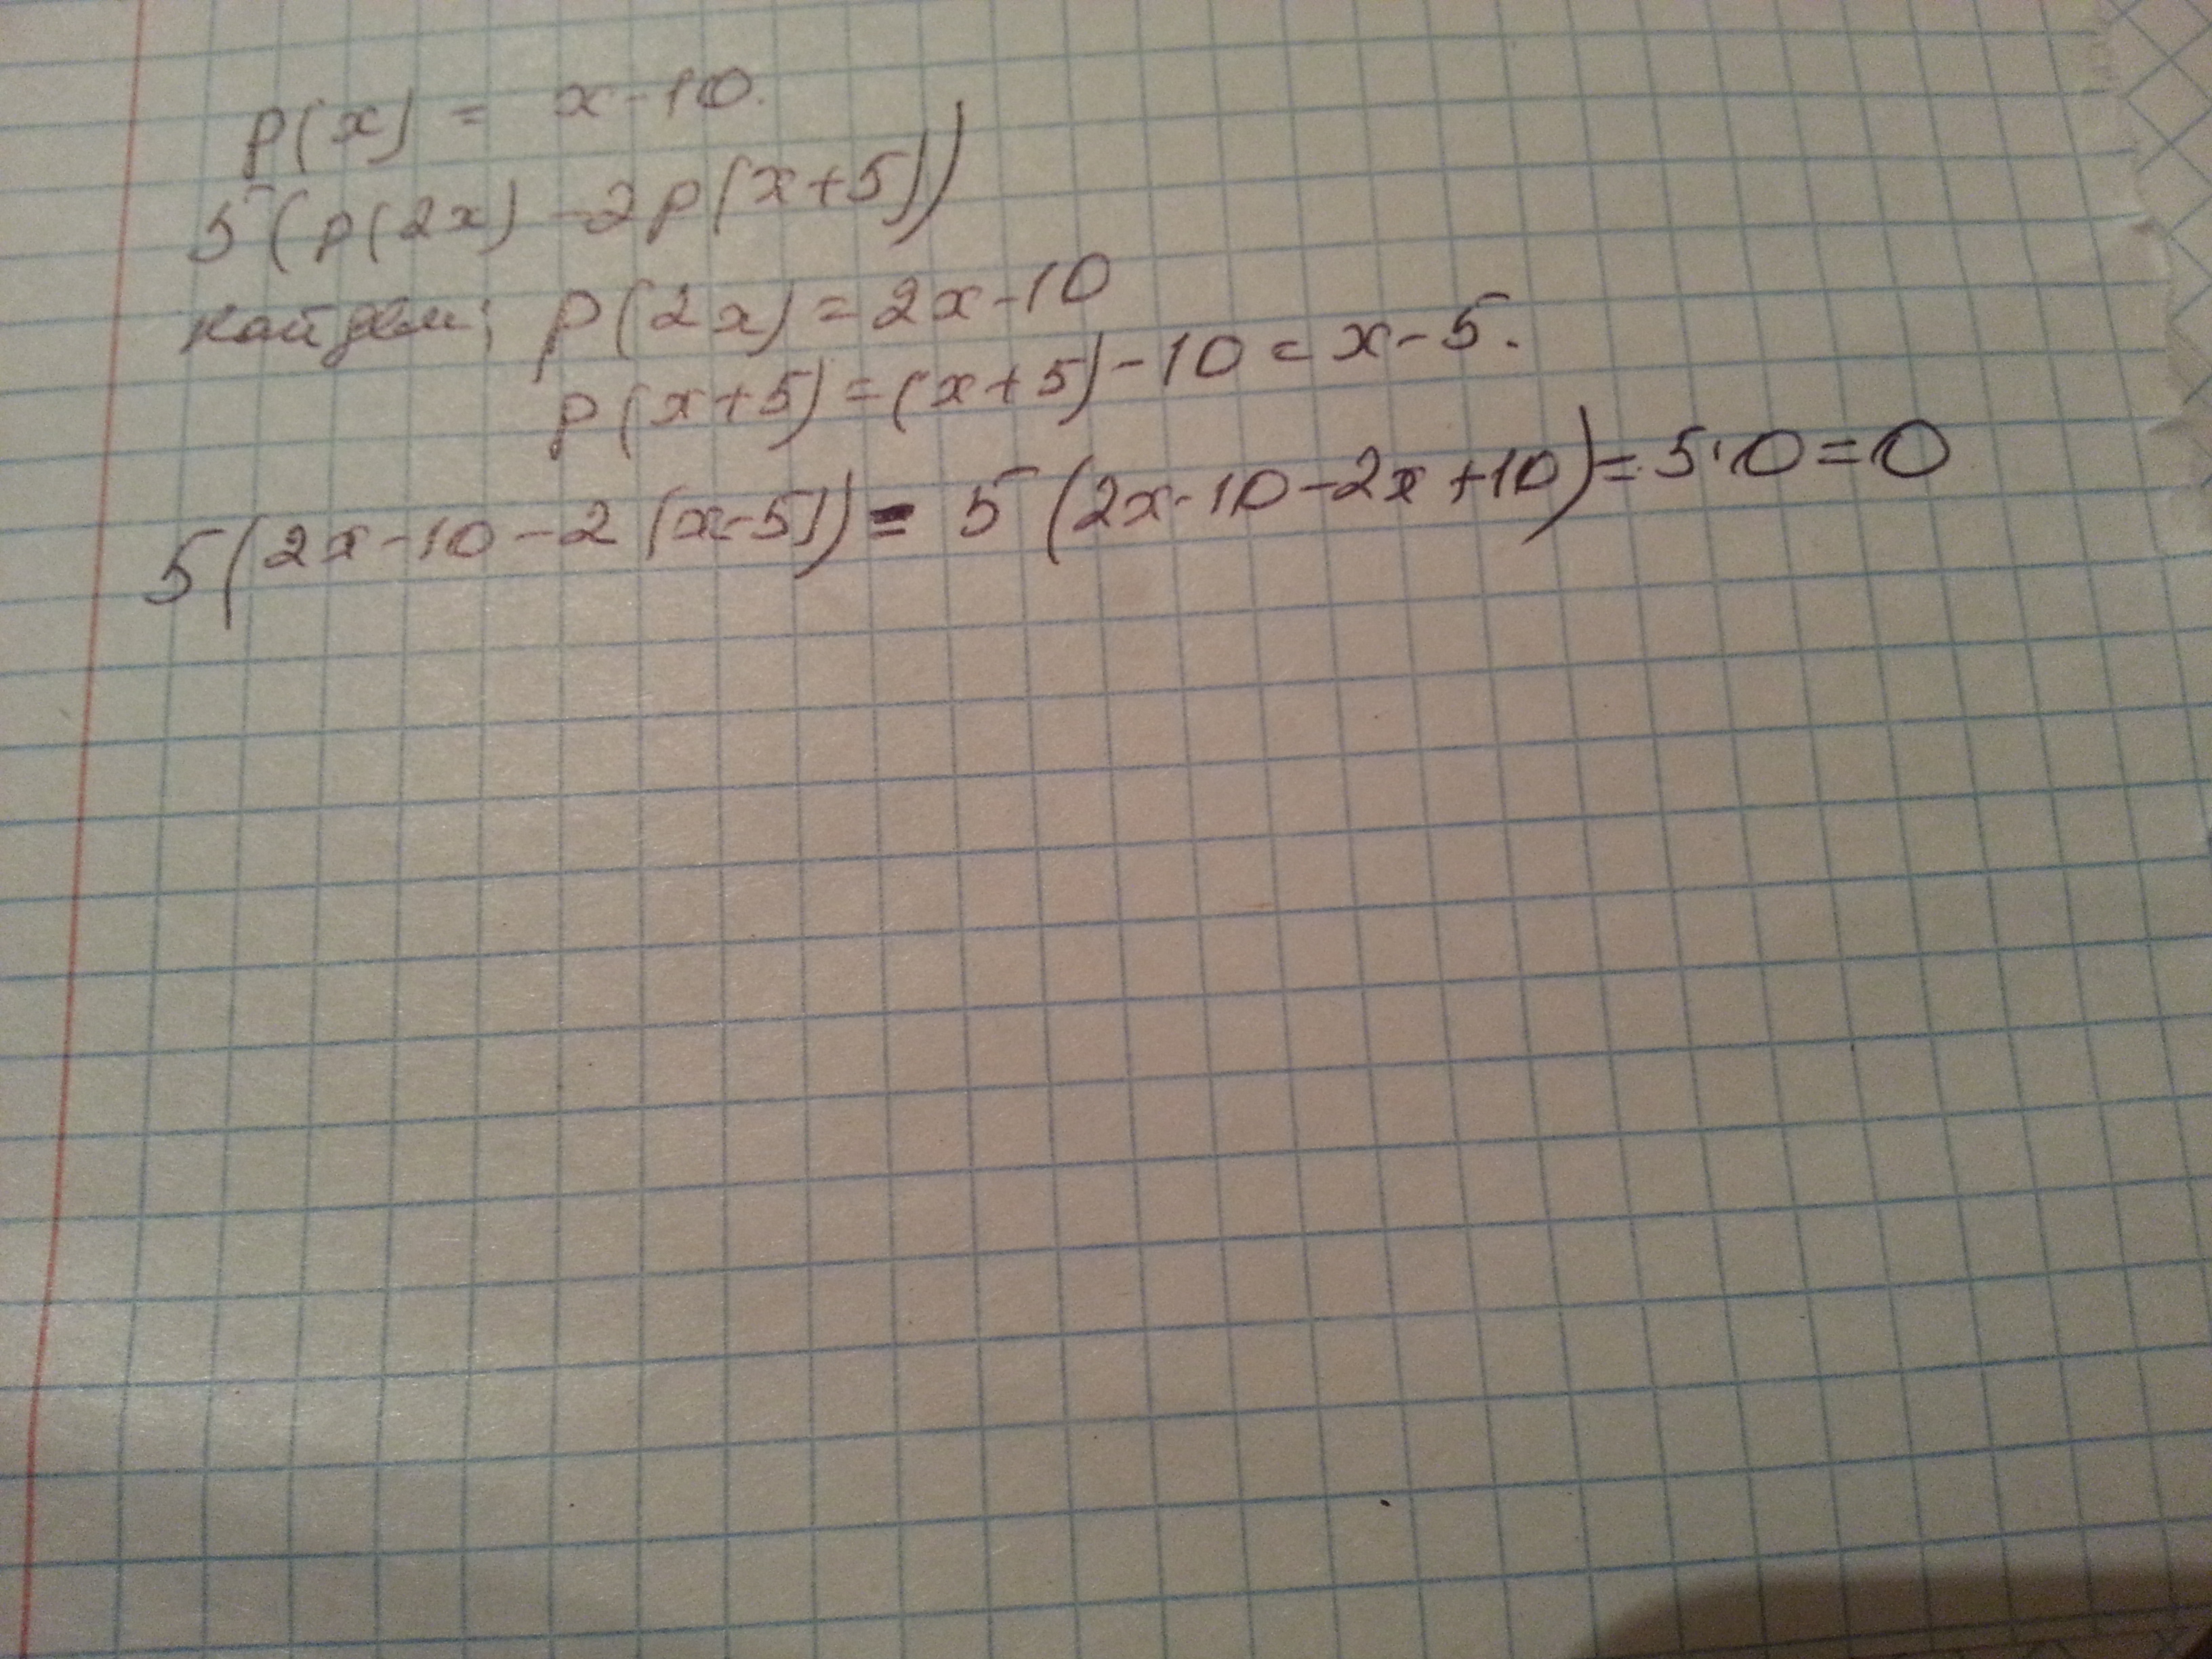 p(x) = x-10.
5(p(2x) -2p(x+5))
найдем: p(2x)=2x-10
p(x+5)=(x+5)-10=x-5.
5(2x-10-2(x-5))= 5(2x-10-2x+10)=5·0=0